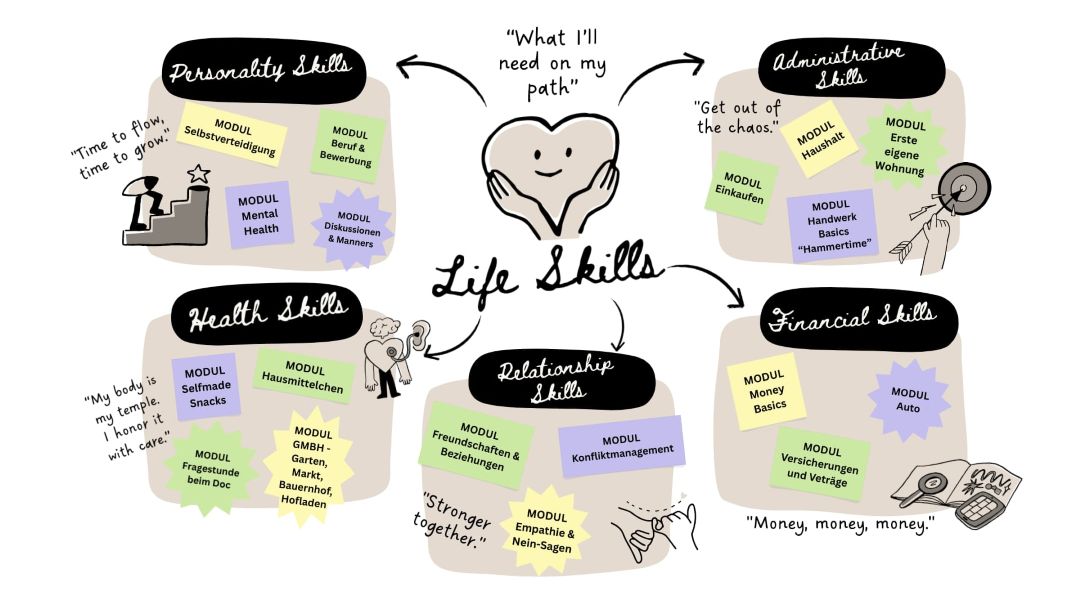 "What I'll
need on my
path"
Life Skills
Personality Skills
"Time to flow,
time to grow."
MODUL
Selbstverteidigung
MODUL
Beruf &
Bewerbung
MODUL
Mental
Health
MODUL
Diskussionen
& Manners
Administrative
Skills
"Get out of
the chaos."
MODUL
Haushalt
MODUL
Erste
eigene
Wohnung
MODUL
Einkaufen
MODUL
Handwerk
Basics
"Hammertime"
Health Skills
"My body is
my temple.
I honor it
with care."
MODUL
Selfmade
Snacks
MODUL
Hausmittelchen
MODUL
Fragestunde
beim Doc
MODUL
GMBH -
Garten,
Markt,
Bauernhof,
Hofladen
Relationship
Skills
MODUL
Freundschaften &
Beziehungen
MODUL
Konfliktmanagement
"Stronger
together."
MODUL
Empathie &
Nein-Sagen
Financial Skills
MODUL
Money
Basics
MODUL
Auto
MODUL
Versicherungen
und Veträge
"Money, money, money."